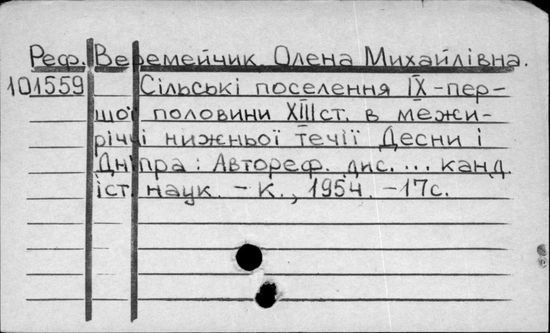 Реф. Веремейчик Олена Михайлівна.
101559 Сільські поселення IX-пер-
шої половини XIII ст. в межи-
річчі нижньої течії Десни і
Дніпра: Автореф. дис. ... канд.
іст. наук. - К., 1954. - 17с.